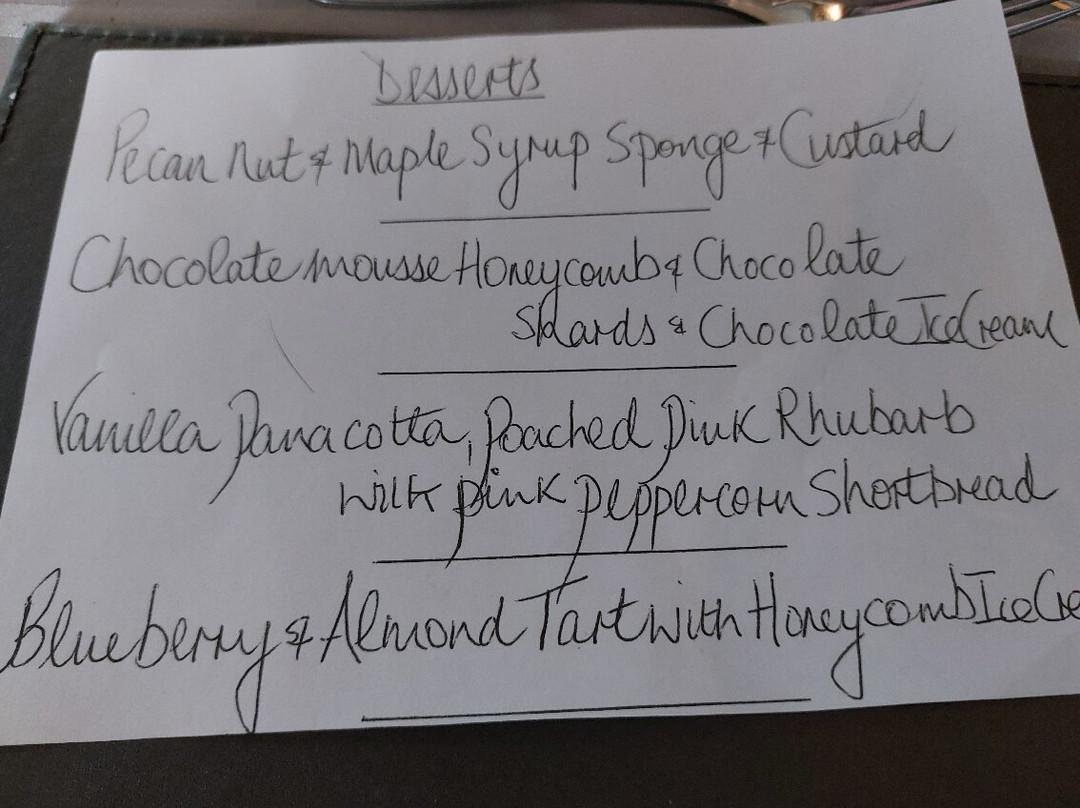 Desserts
Pecan Nut & Maple Syrup Sponge & Custard
Chocolate mousse Honeycomb & Chocolate
Shards & Chocolate Ice Cream
Vanilla Panacotta, Poached Pink Rhubarb
with pink peppercorn Shortbread
Blueberry & Almond Tart with Honeycomb Ice Cre